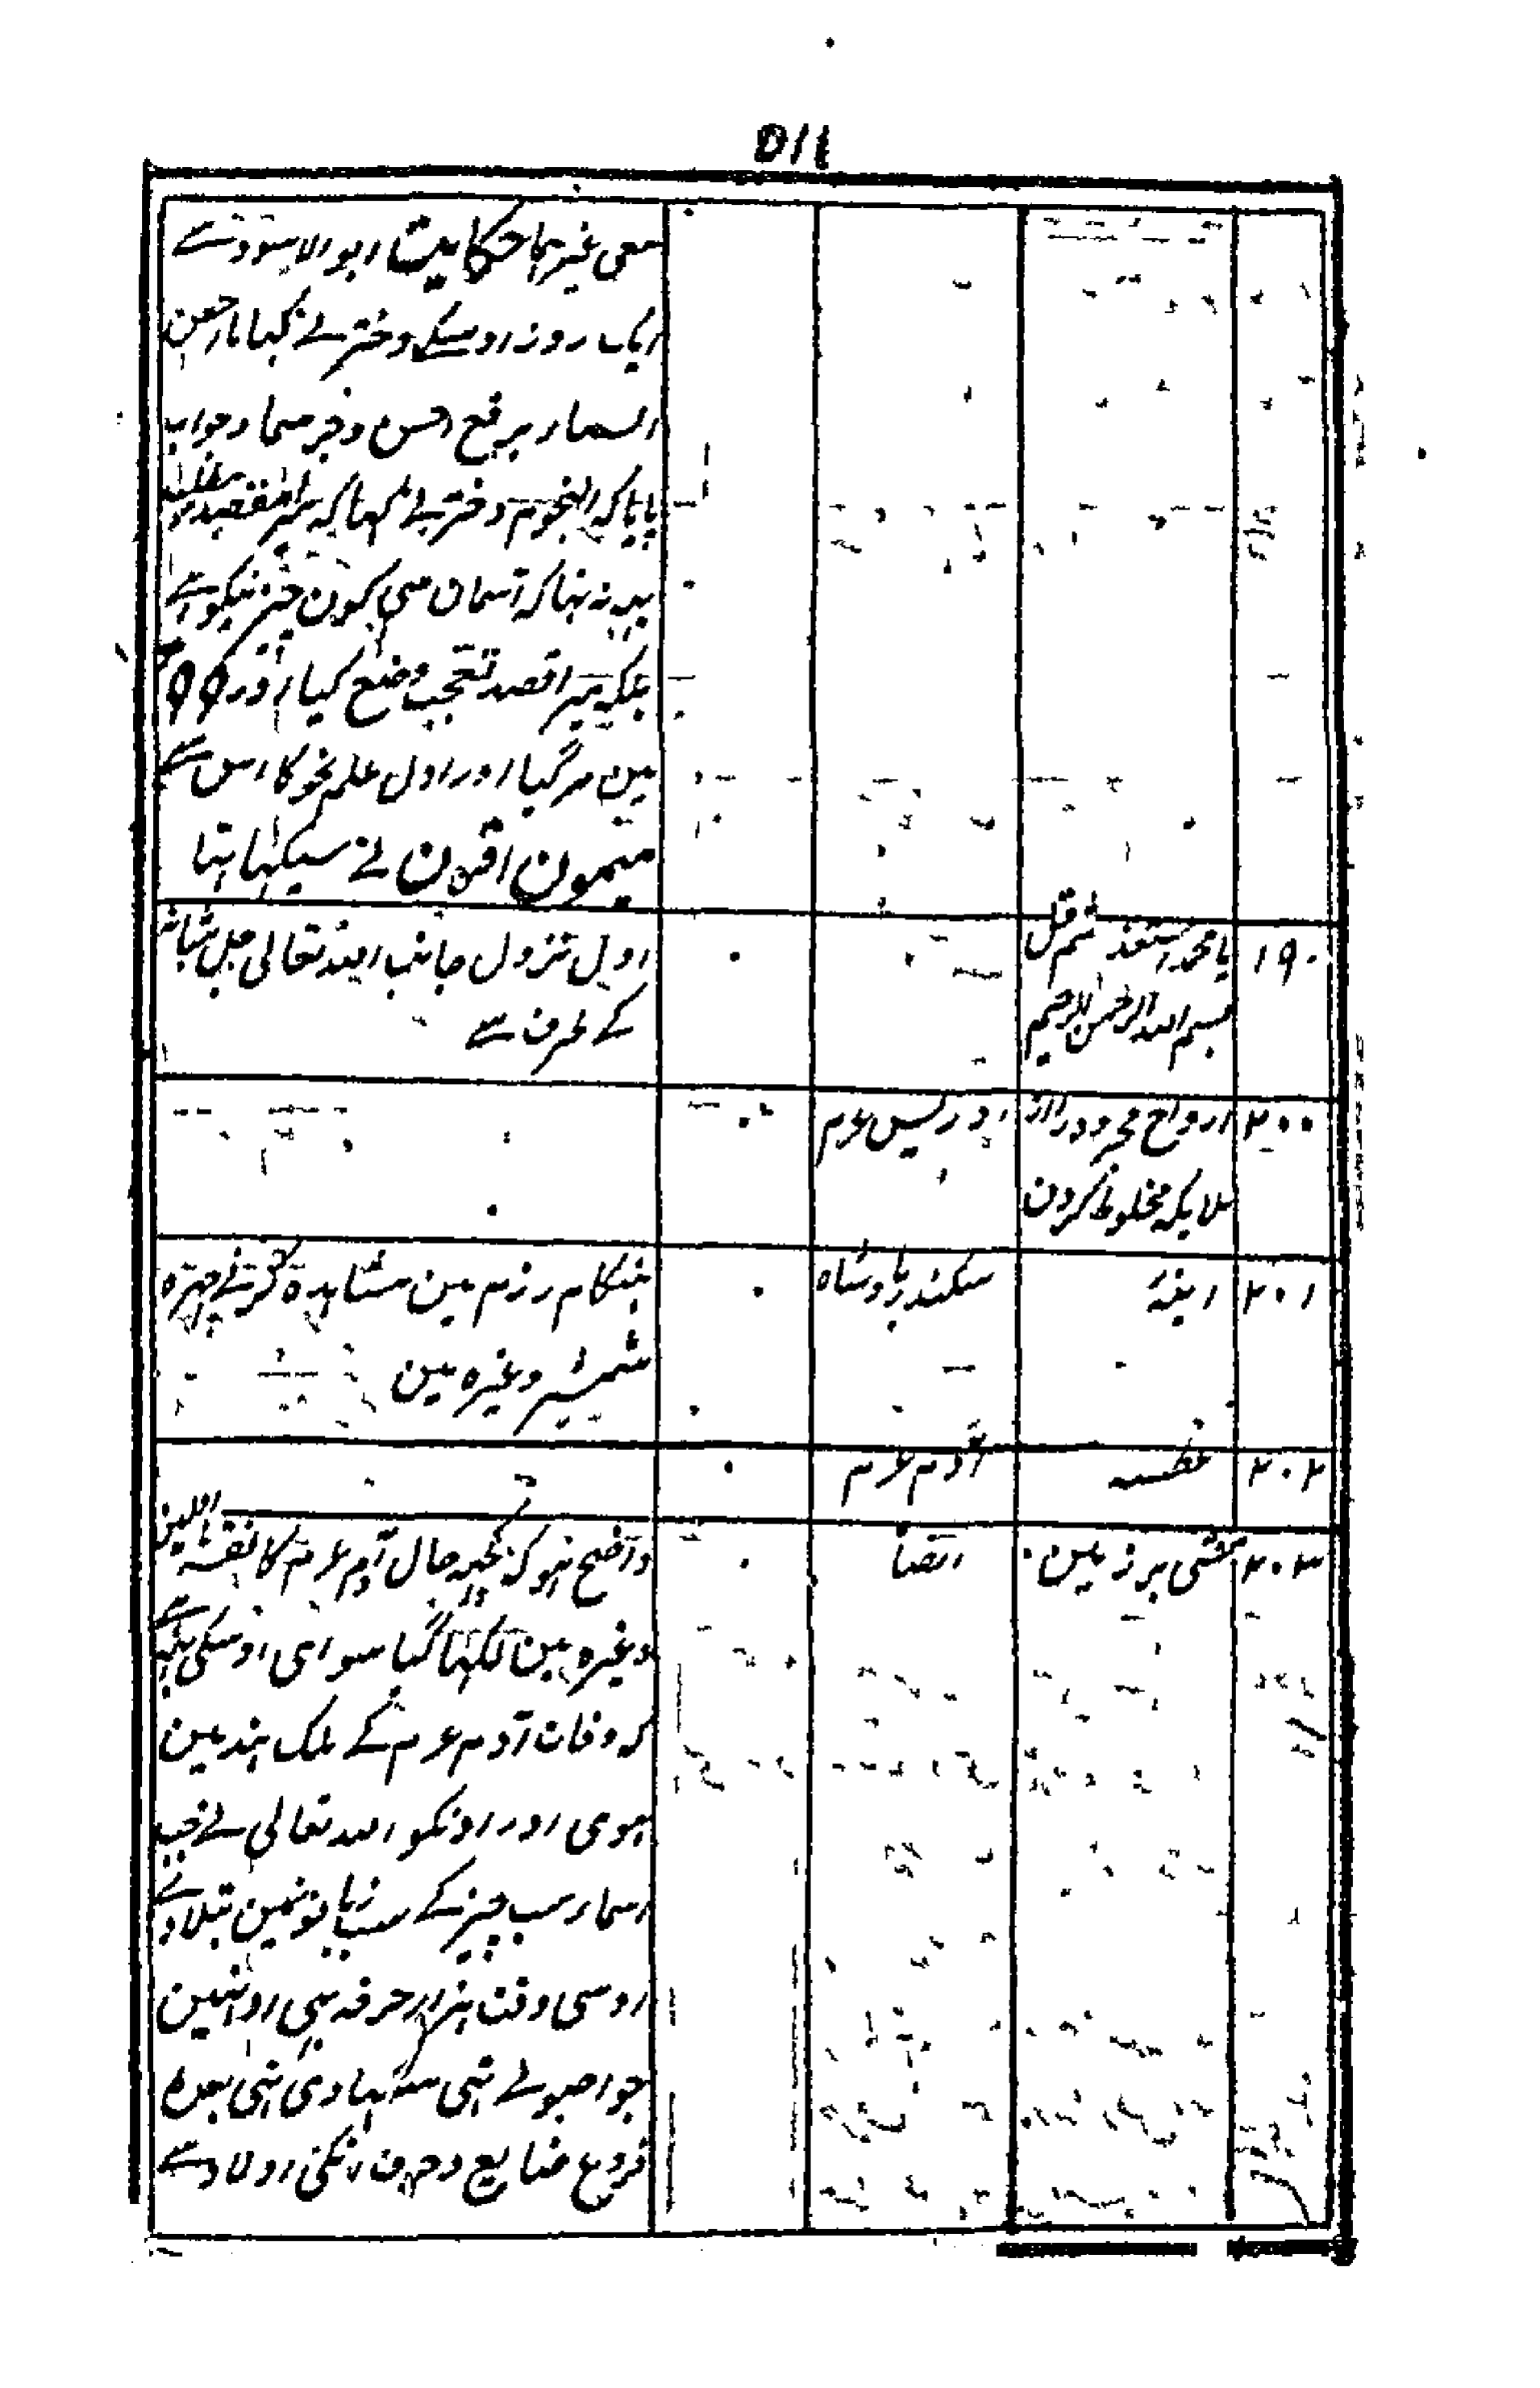 ۵۱۱
معی غیرہما حکایت ابو الاسود سے
ایک روز اوسکے دختر نے کہا ما احسن
السماء برفع احسن و جر سماء جواب
پایا کہ النجوم دختر نے کہا کہ میرا مقصد
یہ نہ تہا کہ آسمان میں کون چیز نیکو ہے
بلکہ میرا قصد تعجب وضع کیا اور ۹۹
مین مر گیا اور اول علم نحو کا اس سے
میمون اقرن نے سیکہا تہا
۱۹۰ یا محمد استعذ ثم قل
بسم اللہ الرحمن الرحیم
اول نزول جانب ایزد تعالی جل شانہ
کے طرف سے
۲۰۰ ارواح مجرد را از
ملایکہ مخلوط کردن
ادریس عم
۲۰۱ اینہ
سکندر بادشاہ
ہنگام رزم مین مشاہدہ کرنے چہرہ
شمشیر وغیرہ مین
۲۰۲ عطسہ
آدم عم
۲۰۳ مشی بر زمین
ایضاً
واضح ہو کہ کچہ حال آدم عم کا نقشہ اولین
وغیرہ مین لکہا گیا سوای اوسکی یہ ہے
کہ وفات آدم عم کے ملک ہند مین
ہوی اور اونکو اللہ تعالی نے جب
اسمار سب چیز کے سب زبانونمین بتلادے
اوسی وقت ہزار حرفہ بہی اونہین
جو اصولے تہی سکہا دی تہی بعدہ
فروع صنایع و حرف انکی اولاد سے